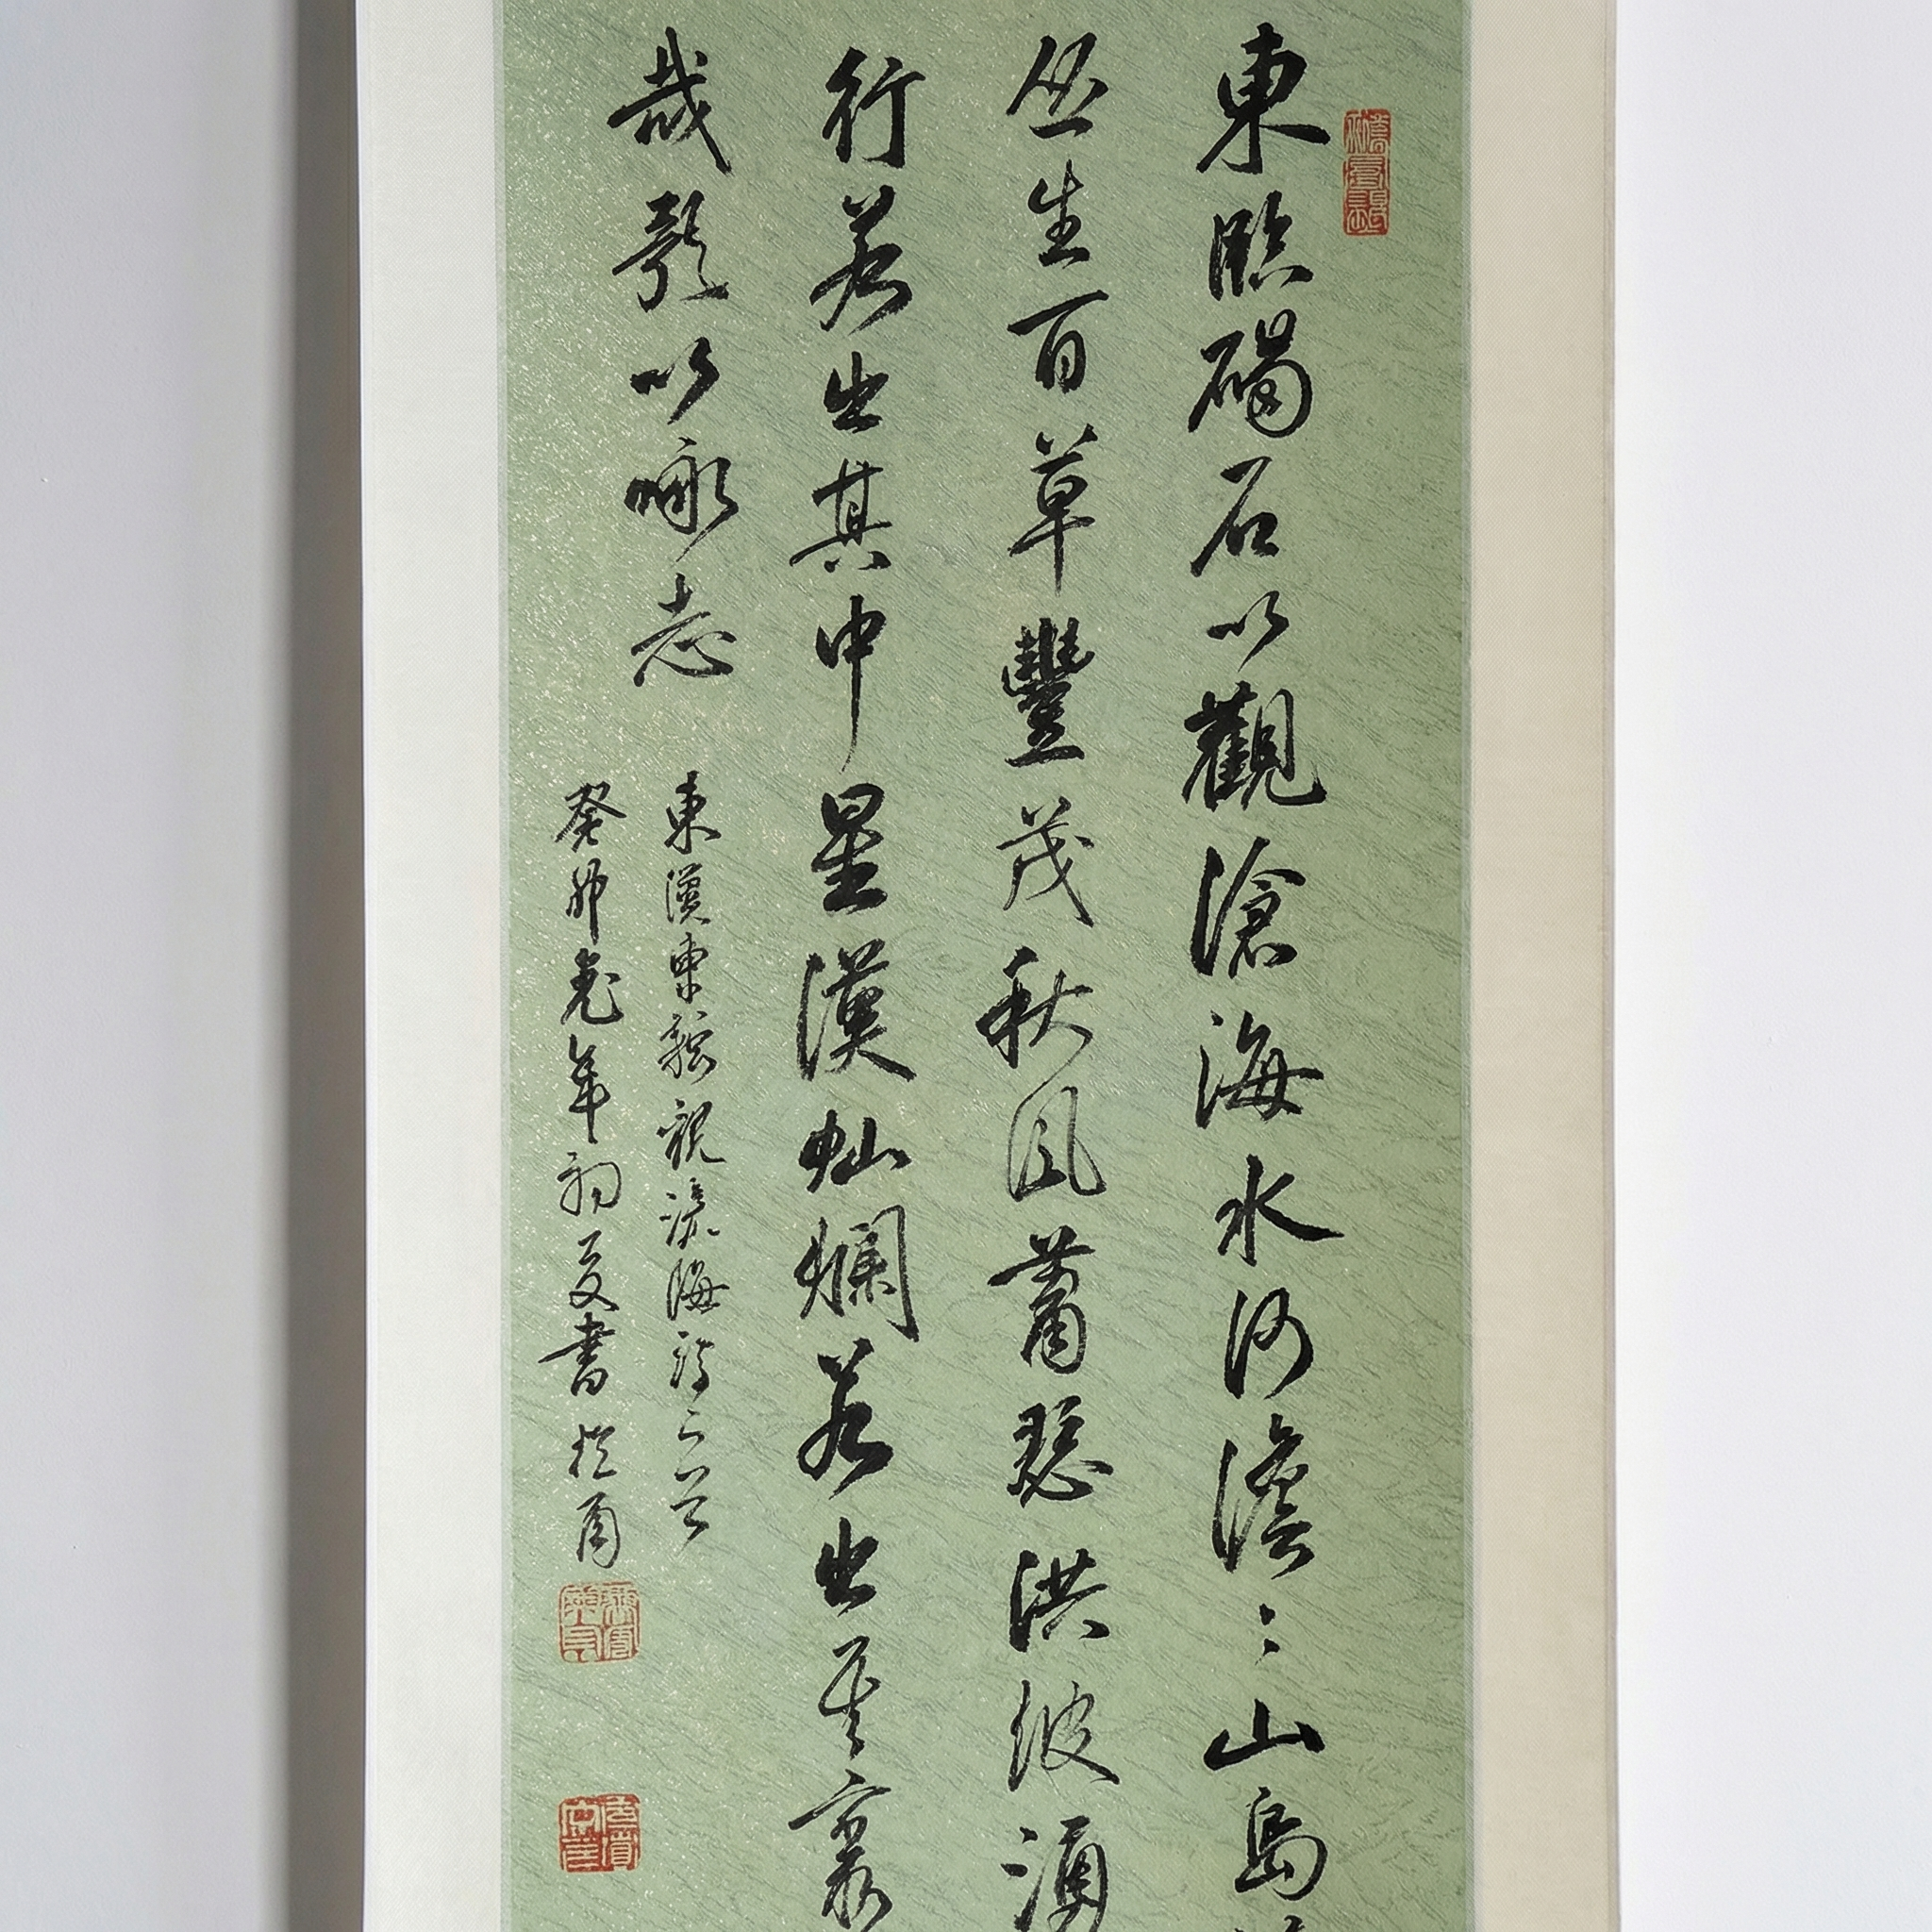 東臨碣石以觀滄海水何澹〻山島
丛生百草豐茂秋風蕭瑟洪波涌
行若出其中星漢灿爛若出其裏
哉歌以咏志
東漢曹操觀滄海詩一首
癸卯兔年初夏書於甬